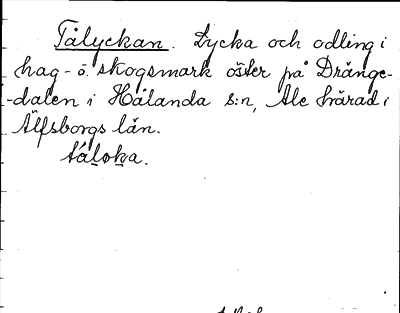 Tålyckan. Lycka och odling i
hag- o. skogsmark öster på Dränge-
-dalen i Hålanda s:n, Ale härad i
Älfsborgs län.
táloka.